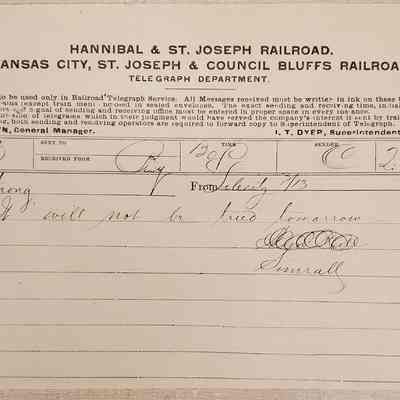 HANNIBAL & ST. JOSEPH RAILROAD.
ANSAS CITY, ST. JOSEPH & COUNCIL BLUFFS RAILROA
TELEGRAPH DEPARTMENT.
to be used only in Railroad Telegraph Service. All Messages received must be written in ink on these
(except train men) enclosed in sealed envelopes. The exact sending and receiving time, initia
and signal of sending and receiving office must be entered in proper space in every instance.
sion of telegrams which in their judgment would have served the company's interest if sent by trai
ng, both sending and receiving operators are required to forward copy to Superintendent of Telegraph.
N, General Manager. I. T. DYER, Superintendent
SENT TO
RECEIVED FROM
TIME
SENDER
rong From 2/13
It will not be tried tomorrow
Simrall